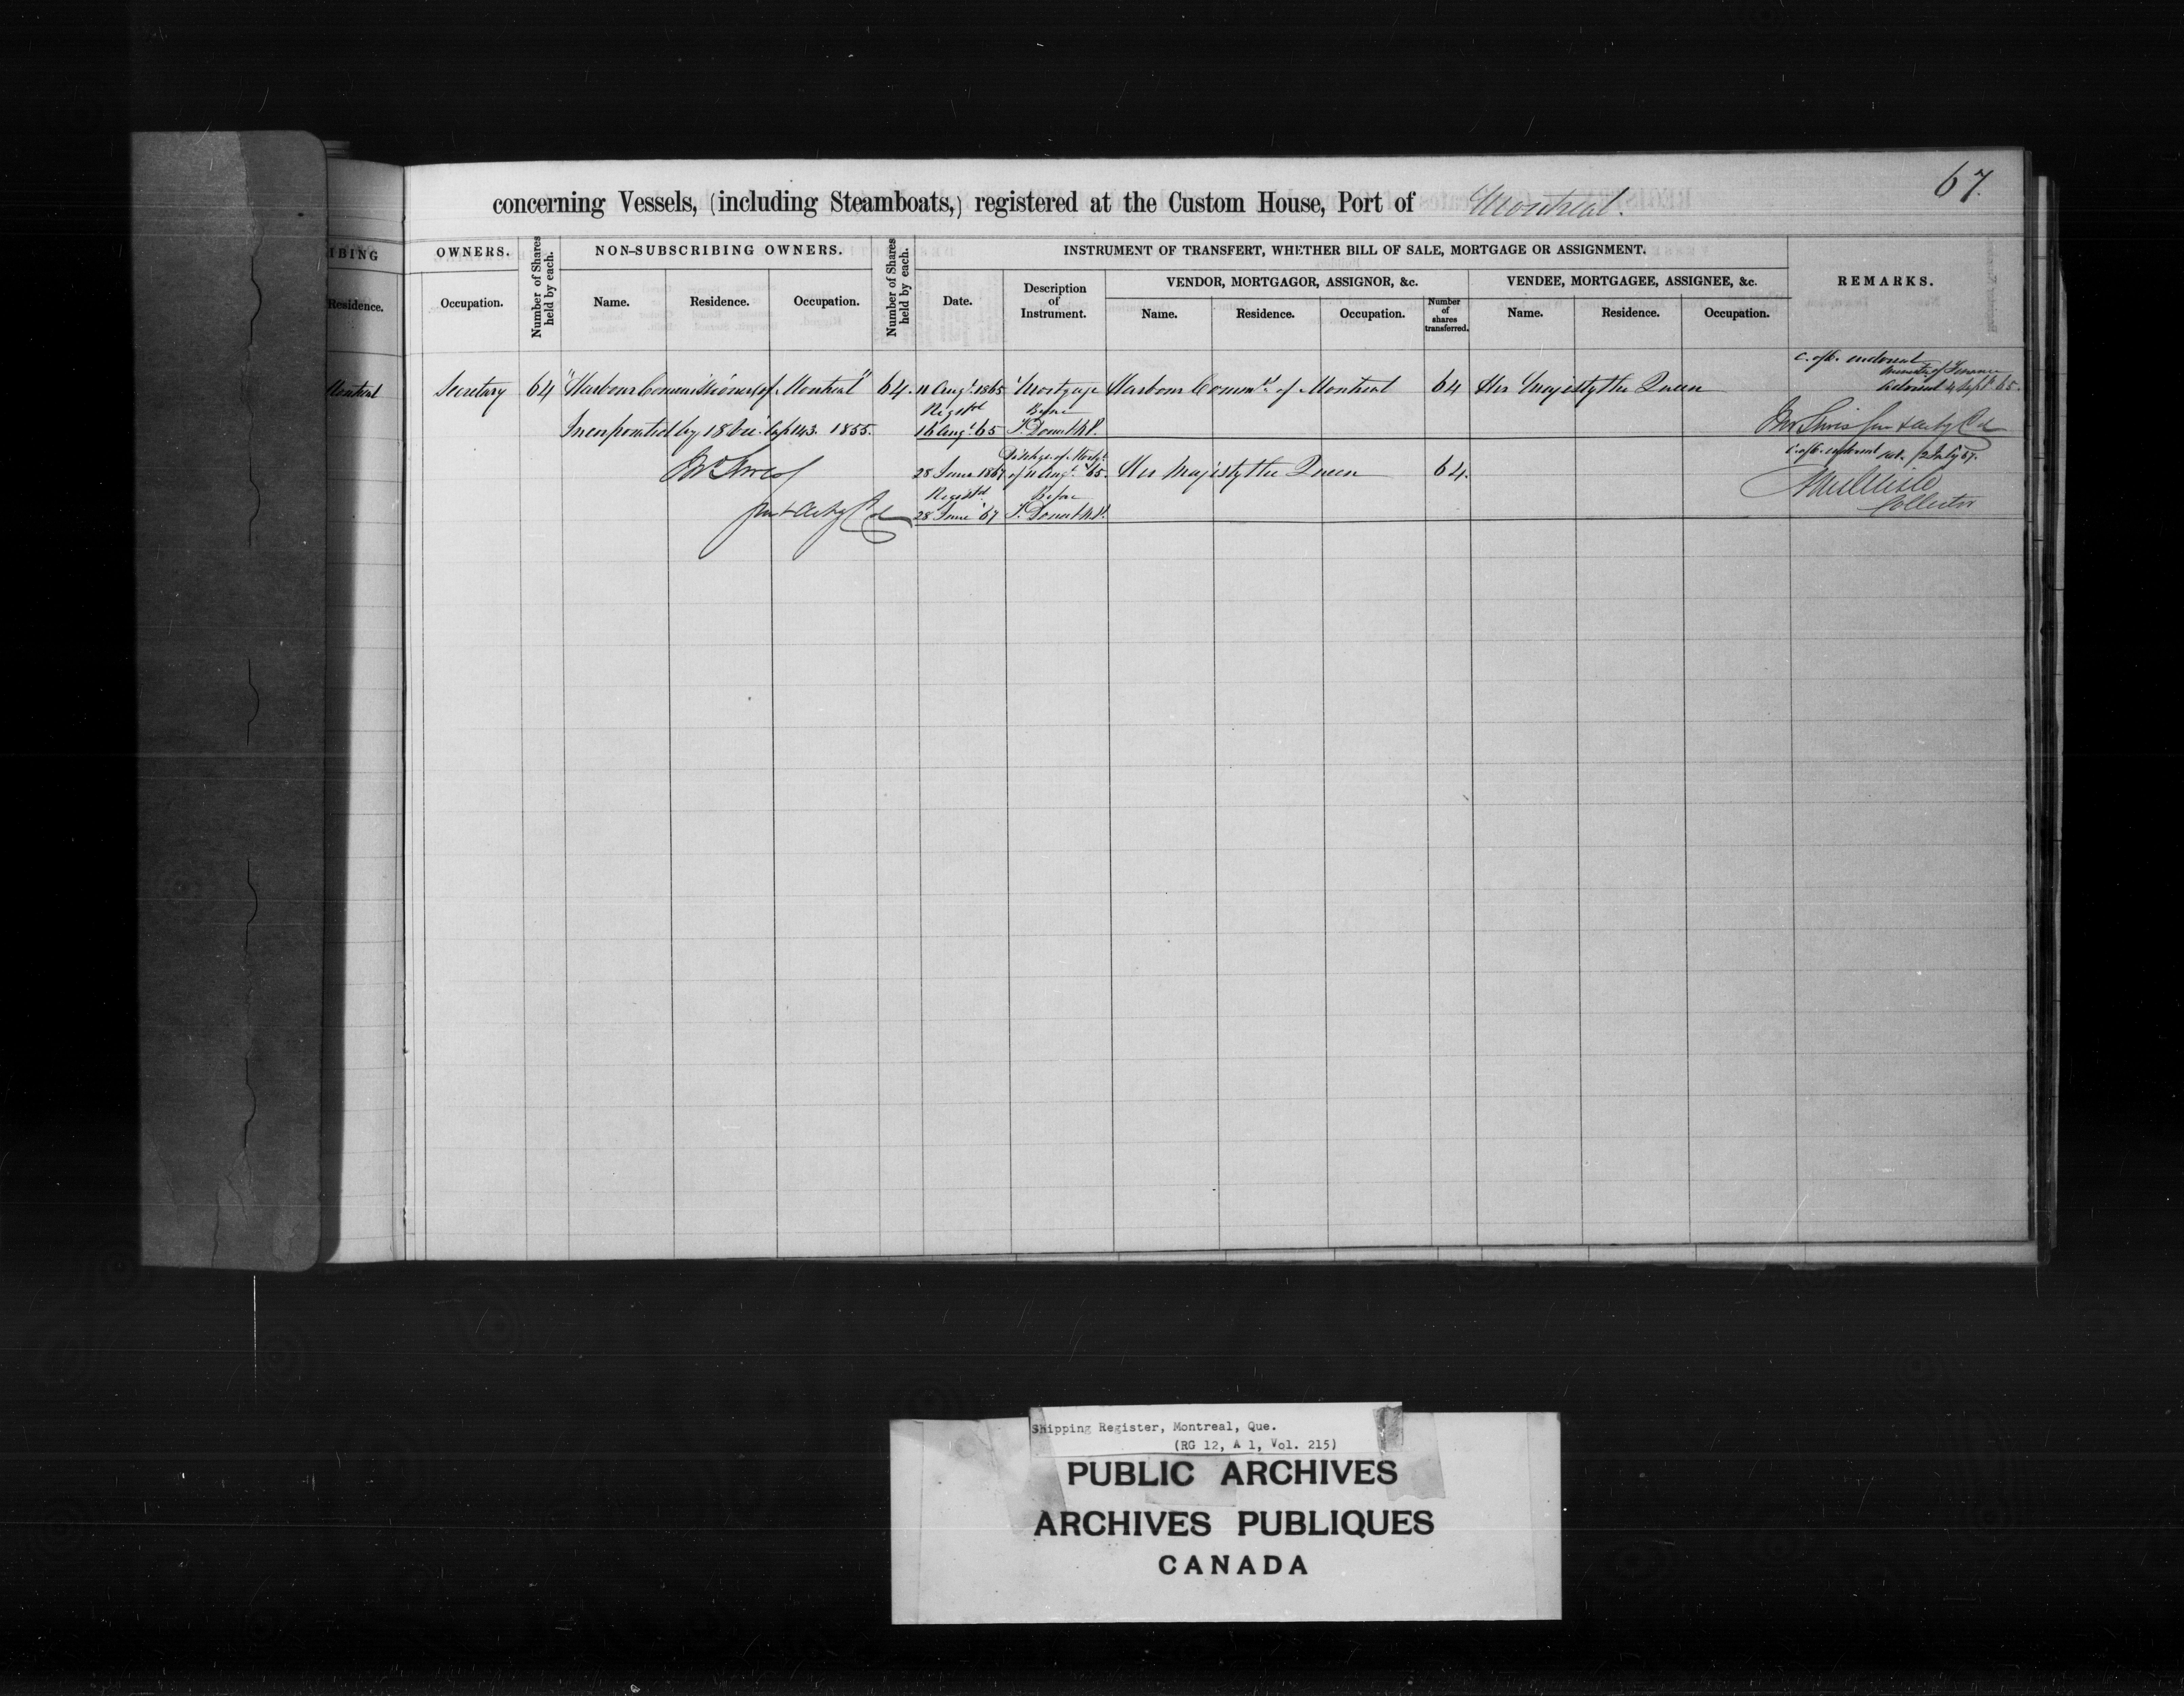 67.
concerning Vessels, (including Steamboats,) registered at the Custom House, Port of Montreal.
IBING OWNERS. Number of Shares held by each. NON-SUBSCRIBING OWNERS. Number of Shares held by each. INSTRUMENT OF TRANSFERT, WHETHER BILL OF SALE, MORTGAGE OR ASSIGNMENT. REMARKS.
VENDOR, MORTGAGOR, ASSIGNOR, &c. VENDEE, MORTGAGEE, ASSIGNEE, &c.
Residence. Occupation. Name. Residence. Occupation. Date. Description of Instrument. Name. Residence. Occupation. Number of shares transferred. Name. Residence. Occupation.
C. of O. endorsed
Minister of Finance
Montreal Secretary 64 "Harbour Commissioners of Montreal" 64. 11 Augt. 1865 Mortgage Harbour Commrs of Montreal 64 Her Majesty the Queen 4 Septr 65.
Registd Before
Incorporated by 18 Vic. Cap 143. 1855. 16 Augt. 65 T. Doucet N.P.
Dischge. of Mortge. 12 July 67.
28 June 1867 of 11 Augt. 65. Her Majesty the Queen 64.
Registd Before
Collector
28 June '67 T. Doucet N.P.
Shipping Register, Montreal, Que.
(RG 12, A 1, Vol. 215)
PUBLIC ARCHIVES
ARCHIVES PUBLIQUES
CANADA